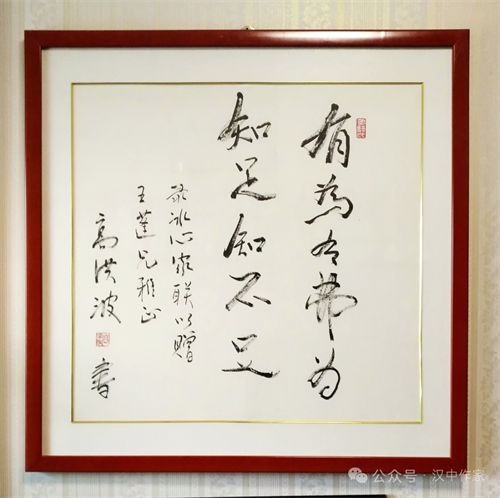 有為有弗为
知足知不足
录冰心家联以赠
王蓬兄雅正
高洪波
書
公众号 · 汉中作家